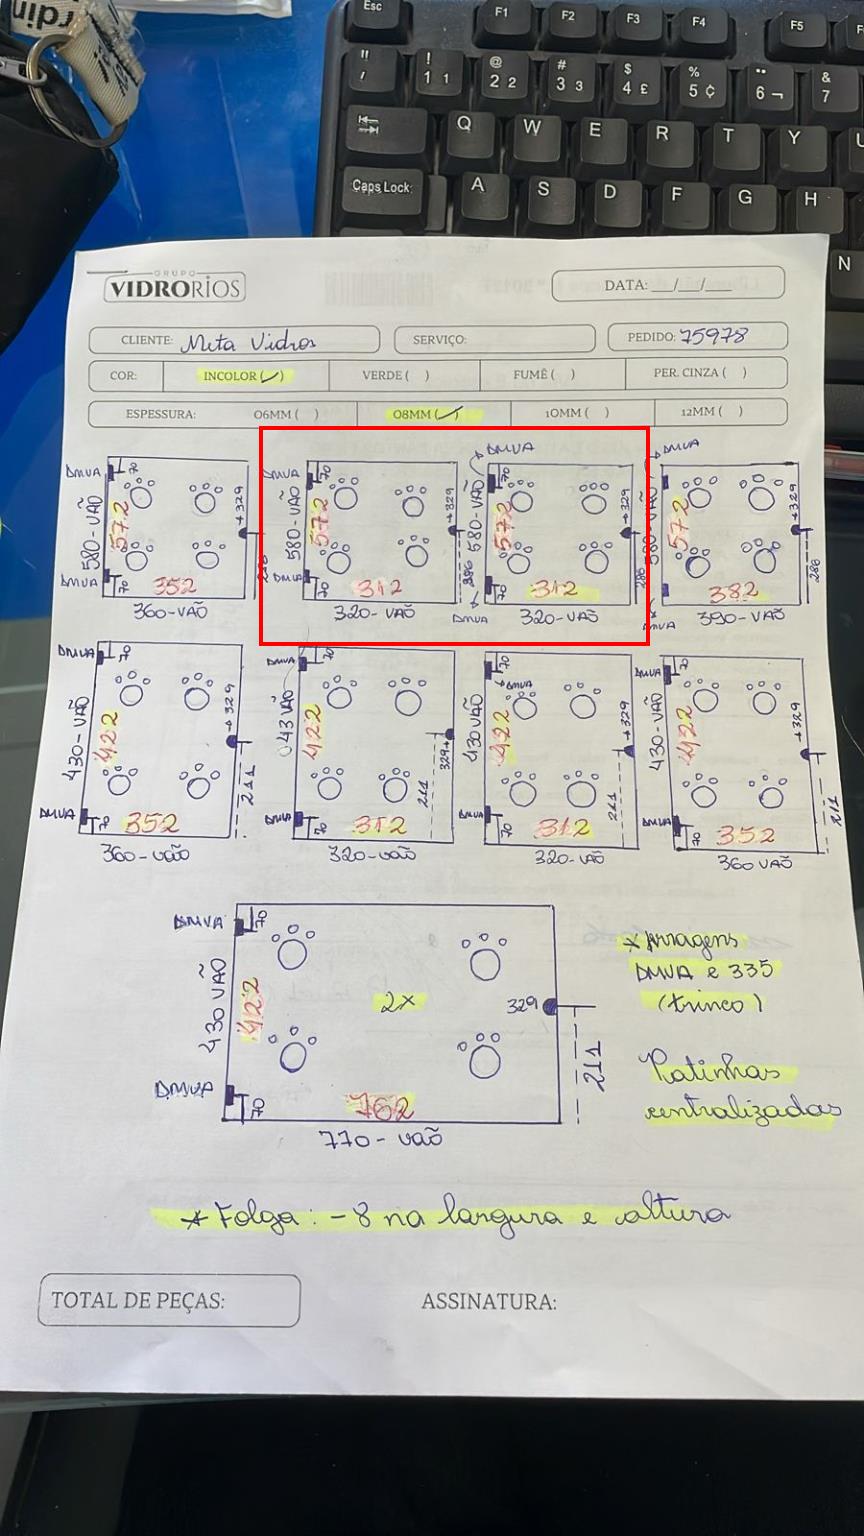 rdin
Esc F1 F2 F3 F4 F5 F
" / ! 1 1 @ 2 2 # 3 3 $ 4 £ % 5 ¢ ¨ 6 ¬ & 7
Q W E R T Y U
Caps Lock A S D F G H
N
GRUPO
VIDRORIOS
DATA: __/__/__
CLIENTE: Meta Vidros SERVIÇO: PEDIDO: 75978
COR: INCOLOR (✓) VERDE ( ) FUMÊ ( ) PER. CINZA ( )
ESPESSURA: 06MM ( ) 08MM (✓) 10MM ( ) 12MM ( )
DMVA 70 580-VÃO 572 +329 DMVA 70 352
360-VÃO
DMVA 70 580-VÃO 572 DMVA 70 312 286
320-VÃO
DMVA 70 580-VÃO 572 +329 DMVA 70 312 286
320-VÃO
DMVA 580-VÃO 572 +329 DMVA 382 286
390-VÃO
DMVA 70 430-VÃO 422 +329 211 DMVA 70 352
360-VÃO
DMVA 70 043 VÃO 422 329+ 211 DMVA 70 312
320-VÃO
70 DMVA 430 VÃO 422 +329 211 DMVA 70 312
320-VÃO
DMVA 70 430-VÃO 422 +329 211 DMVA 70 352
360 VÃO
DMVA 70 430 VÃO 422 2X 329 211 DMVA 70 762
770-VÃO
* ferragens
DMVA e 335
(trinco)
Patinhas
centralizadas
* Folga: -8 na largura e altura
TOTAL DE PEÇAS: ASSINATURA: